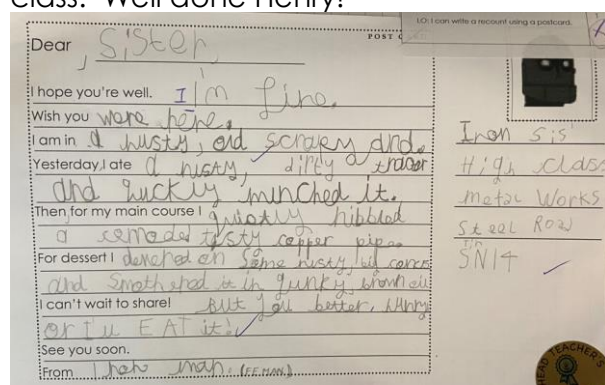 class. Well done Henry!
LO: I can write a recount using a postcard.
POST
Dear Sister,
I hope you're well. I'm fine.
Wish you were here.
I am in a rusty, old scraey and
Yesterday, I ate a rusty, dirty tractor
and quickly minched it.
Then for my main course I quietly nibbled
a tasty copper pipe.
For dessert I on some rusty, big
and it in gunky, brown oil
I can't wait to share! But you better, hurry
or I'll EAT it!
See you soon.
From Iron man.
Iron Sis
High class
metal Works
Steel Road
SN14
HEAD TEACHER'S